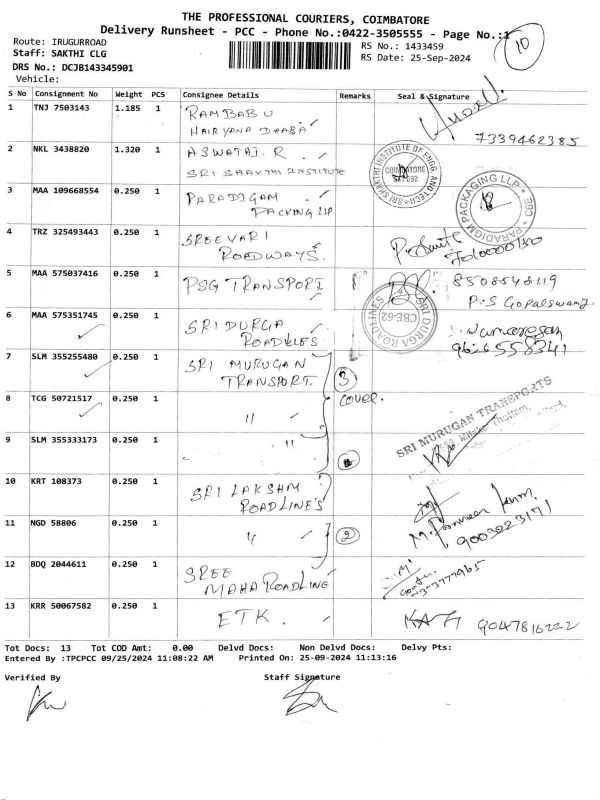 THE PROFESSIONAL COURIERS, COIMBATORE
Delivery Runsheet - PCC - Phone No.:0422-3505555 - Page No.:1
10
Route: IRUGURROAD
RS No.: 1433459
Staff: SAKTHI CLG
RS Date: 25-Sep-2024
DRS No.: DCJB143345901
Vehicle:
S No Consignment No Weight PCS Consignee Details Remarks Seal & Signature
1 TNJ 7503143 1.185 1 RAMBABU
HAIRYANA DHABA
7339462385
2 NKL 3438820 1.320 1 ASWATHI.R
SRI SHAKTHI INSTITUTE
SRI SHAKTHI INSTITUTE OF ENGG. AND TECH
COIMBATORE
641 062
3 MAA 109668554 0.250 1 PARADIGAM
PACKING LLP
PARADIGM PACKAGING LLP
CBE
4 TRZ 325493443 0.250 1 SREEVARI
ROADWAYS.
5 MAA 575037416 0.250 1 PSG TRANSPORT
P.S Gopalswamy
6 MAA 575351745 0.250 1 SRI DURGA
ROADLINES
SRI DURGA ROADLINES
CBE-62
9626558341
7 SLM 355255480 0.250 1 SRI MURUGAN
TRANSPORT.
3
cover.
8 TCG 50721517 0.250 1 "
SRI MURUGAN TRANSPORTS
9 SLM 355333173 0.250 1 "
10 KRT 108373 0.250 1 SRI LAKSHM
ROADLINE'S
9003223171
11 NGD 58806 0.250 1 "
2
12 BDQ 2044611 0.250 1 SREE
MAHA ROADLINE
13 KRR 50067582 0.250 1 ETK.
9047816222
Tot Docs: 13 Tot COD Amt: 0.00 Delvd Docs: Non Delvd Docs: Delvy Pts:
Entered By :TPCPCC 09/25/2024 11:08:22 AM Printed On: 25-09-2024 11:13:16
Verified By
Staff Signature